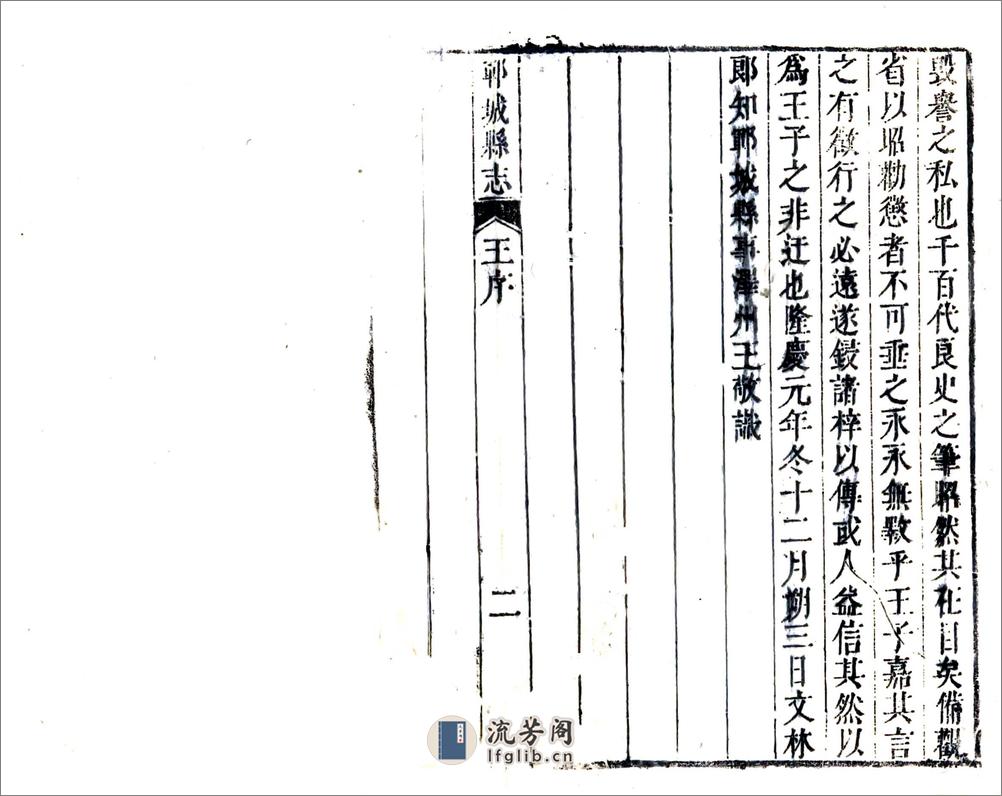 毀譽之私也千百代良史之筆昭然其在目矣備觀
省以昭勸懲者不可垂之永永無斁乎王子嘉其言
之有徵行之必遠遂鋟諸梓以傳或人益信其然以
爲王子之非迂也隆慶元年冬十二月朔三日文林
郎知鄆城縣事澤州王敬識
鄆城縣志
王序
二
流芳阁
lfglib.cn